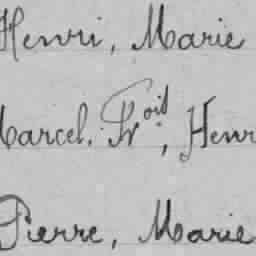 Henri, Marie
Marcel, Fr.ois, Henr
Pierre, Marie